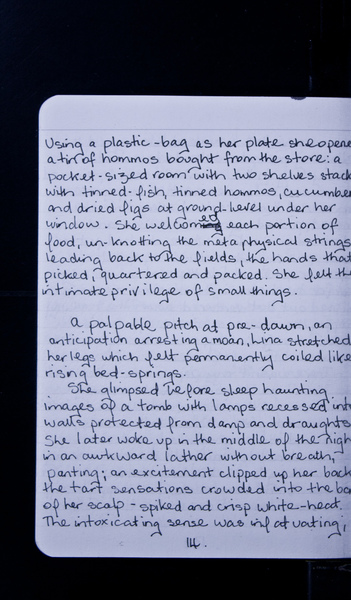 Using a plastic-bag as her plate she opene
a tin of hommos bought from the store: a
pocket-sized room with two shelves stack
with tinned-fish, tinned hommos, cucumber
and dried figs at ground-level under her
window. She welcomed each portion of
food, un-knotting the metaphysical strings
leading back to the fields, the hands that
picked, quartered and packed. She felt th
intimate privilege of small things.
a palpable pitch at pre-dawn, an
anticipation arresting a moan, Lina stretched
her legs which felt permanently coiled like
rising bed-springs.
She glimpsed before sleep haunting
images of a tomb with lamps recessed into
walls protected from damp and draughts
She later woke up in the middle of the nigh
in an awkward lather without breath,
panting; an excitement clipped up her back
the tart sensations crowded into the ba
of her scalp - spiked and crisp white-heat.
The intoxicating sense was infatuating,
14.